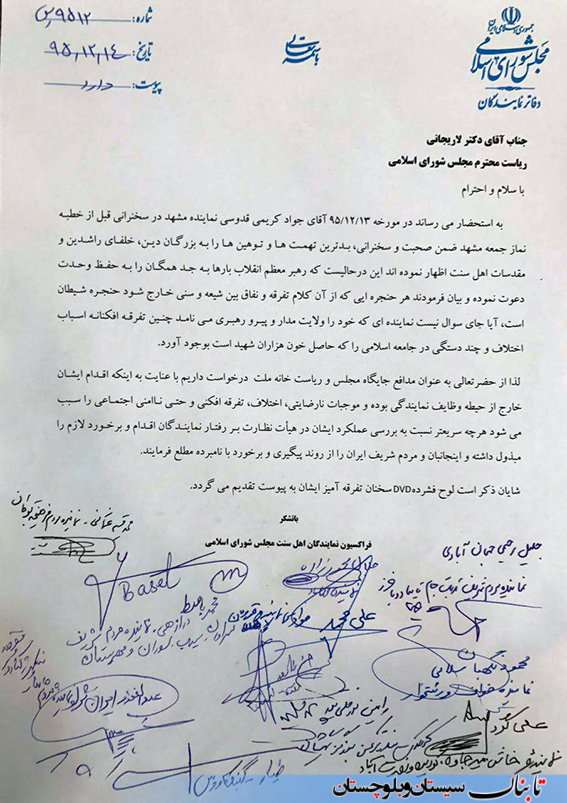 جمهوری اسلامی ایران
مجلس شورای اسلامی
دفاتر نمایندگان
باسمه تعالی
شماره: ۹۵۱۲
تاریخ: ۹۵,۱۲,۱۴
پیوست: دارد
جناب آقای دکتر لاریجانی
ریاست محترم مجلس شورای اسلامی
با سلام و احترام
به استحضار می رساند در مورخه ۹۵/۱۲/۱۳ آقای جواد کریمی قدوسی نماینده مشهد در سخنرانی قبل از خطبه
نماز جمعه مشهد ضمن صحبت و سخنرانی، بدترین تهمت ها و توهین ها را به بزرگان دین، خلفای راشدین و
مقدسات اهل سنت اظهار نموده اند این درحالیست که رهبر معظم انقلاب بارها به جد همگان را به حفظ وحدت
دعوت نموده و بیان فرمودند هر حنجره ایی که از آن کلام تفرقه و نفاق بین شیعه و سنی خارج شود حنجره شیطان
است، آیا جای سوال نیست نماینده ای که خود را ولایت مدار و پیرو رهبری می نامد چنین تفرقه افکنانه اسباب
اختلاف و چند دستگی در جامعه اسلامی را که حاصل خون هزاران شهید است بوجود آورد.
لذا از حضرتعالی به عنوان مدافع جایگاه مجلس و ریاست خانه ملت درخواست داریم با عنایت به اینکه اقدام ایشان
خارج از حیطه وظایف نمایندگی بوده و موجبات نارضایتی، اختلاف، تفرقه افکنی و حتی ناامنی اجتماعی را سبب
می شود هرچه سریعتر نسبت به بررسی عملکرد ایشان در هیأت نظارت بر رفتار نمایندگان اقدام و برخورد لازم را
مبذول داشته و اینجانبان و مردم شریف ایران را از روند پیگیری و برخورد با نامبرده مطلع فرمایند.
شایان ذکر است لوح فشرده DVD سخنان تفرقه آمیز ایشان به پیوست تقدیم می گردد.
باتشکر
فراکسیون نمایندگان اهل سنت مجلس شورای اسلامی
جلیل رحیمی جهان آبادی
نماینده مردم شریف تربت جام تایباد و باخرز
Baset
محمود نگهبان سلامی
نماینده خواف و رشتخوار
علی کرد
تابناک سیستان وبلوچستان